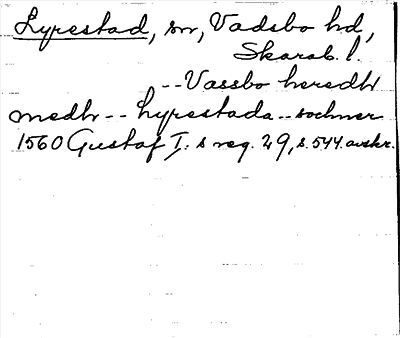 Lyrestad, sn, Vadsbo hd,
Skarab. l.
-- Vassbo heredh
medh -- Lyrestada -- sochner
1560 Gustaf I:s reg. 29, s. 544. avskr.